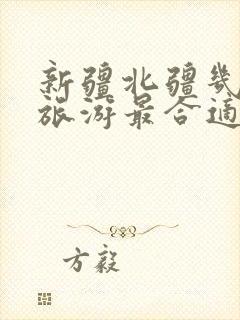 新疆北疆几
旅游最合适
方毅